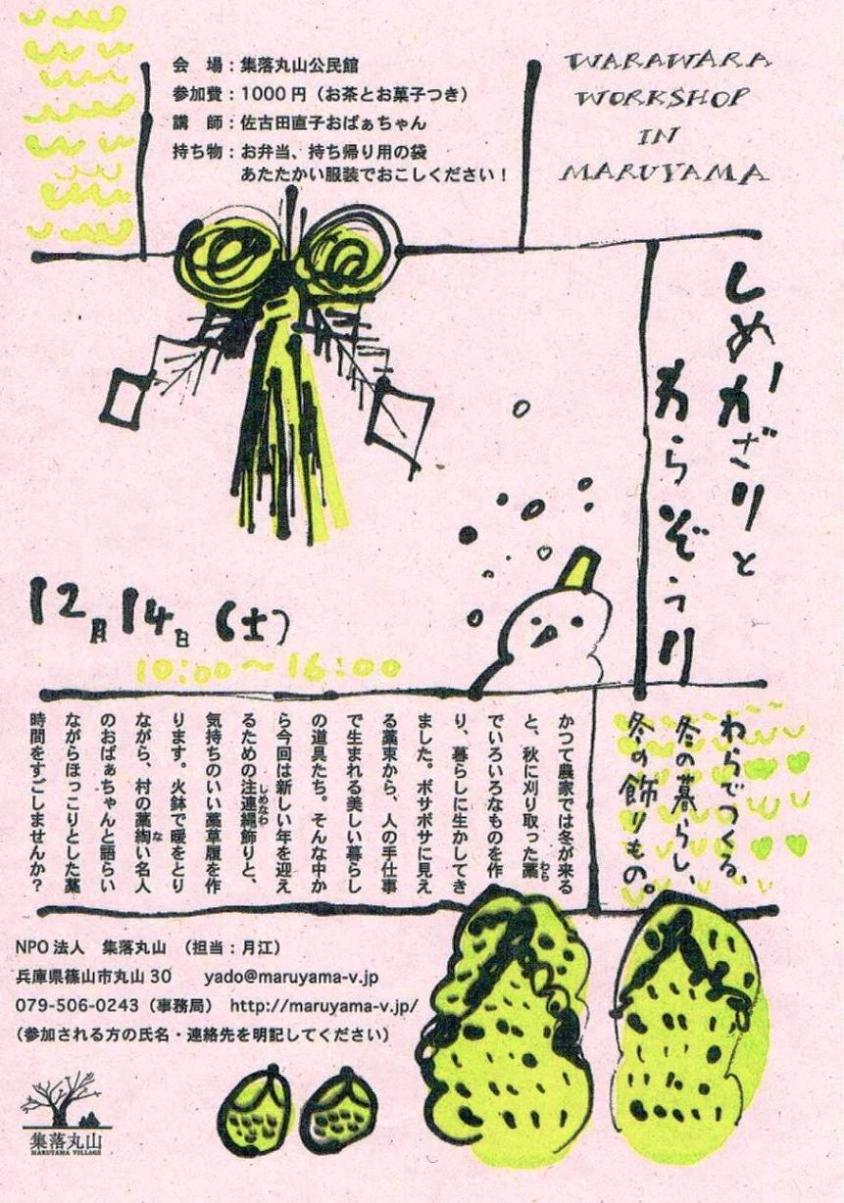 会　場：集落丸山公民館
参加費：1000円（お茶とお菓子つき）
講　師：佐古田直子おばぁちゃん
持ち物：お弁当、持ち帰り用の袋
あたたかい服装でおこしください！
WARAWARA
WORKSHOP
IN
MARUYAMA
しめかざりと
わらぞうり
12月14日（土）
10:00〜16:00
わらでつくる、
冬の暮らし、
冬の飾りもの。
かつて農家では冬が来る
と、秋に刈り取った藁
わら
でいろいろなものを作
り、暮らしに生かしてき
ました。ボサボサに見え
る藁束から、人の手仕事
で生まれる美しい暮らし
の道具たち。そんな中か
ら今回は新しい年を迎え
るための注連縄飾りと、
しめなわ
気持ちのいい藁草履を作
ります。火鉢で暖をとり
ながら、村の藁綯い名人
な
のおばぁちゃんと語らい
ながらほっこりとした藁
時間をすごしませんか？
NPO法人　集落丸山　（担当：月江）
兵庫県篠山市丸山30　yado@maruyama-v.jp
079-506-0243（事務局）　http://maruyama-v.jp/
（参加される方の氏名・連絡先を明記してください）
集落丸山
MARUYAMA VILLAGE